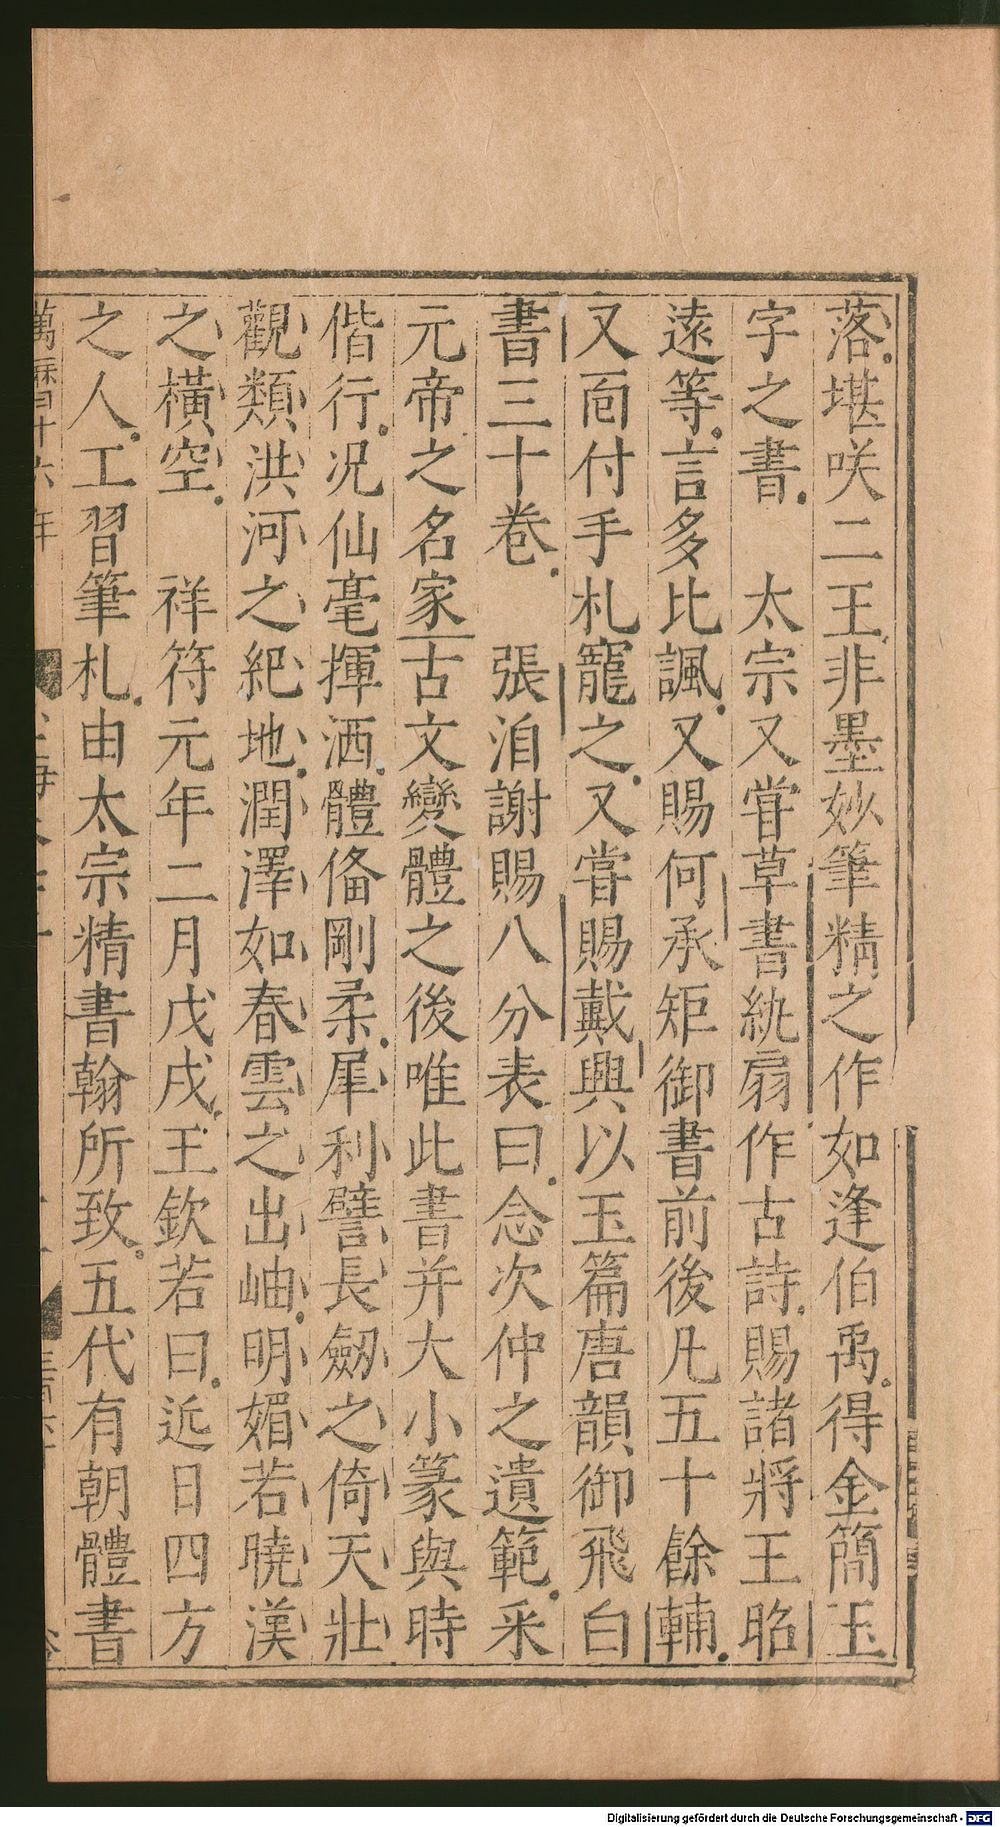 落堪咲二王非墨妙筆精之作如逢伯禹得金簡玉
字之書　太宗又甞草書紈扇作古詩賜諸將王昭
遠等言多比諷又賜何承矩御書前後凡五十餘輔
又面付手札寵之又嘗賜戴興以玉篇唐韻御飛白
書三十卷　張洎謝賜八分表曰念次仲之遺範采
元帝之名家古文變體之後唯此書并大小篆與時
偕行况仙毫揮洒體俻剛柔犀利譬長劒之倚天壯
觀類洪河之紀地潤澤如春雲之出岫明媚若曉漢
之橫空　祥符元年二月戊戌王欽若曰近日四方
之人工習筆札由太宗精書翰所致五代有朝體書
Digitalisierung gefördert durch die Deutsche Forschungsgemeinschaft - DFG